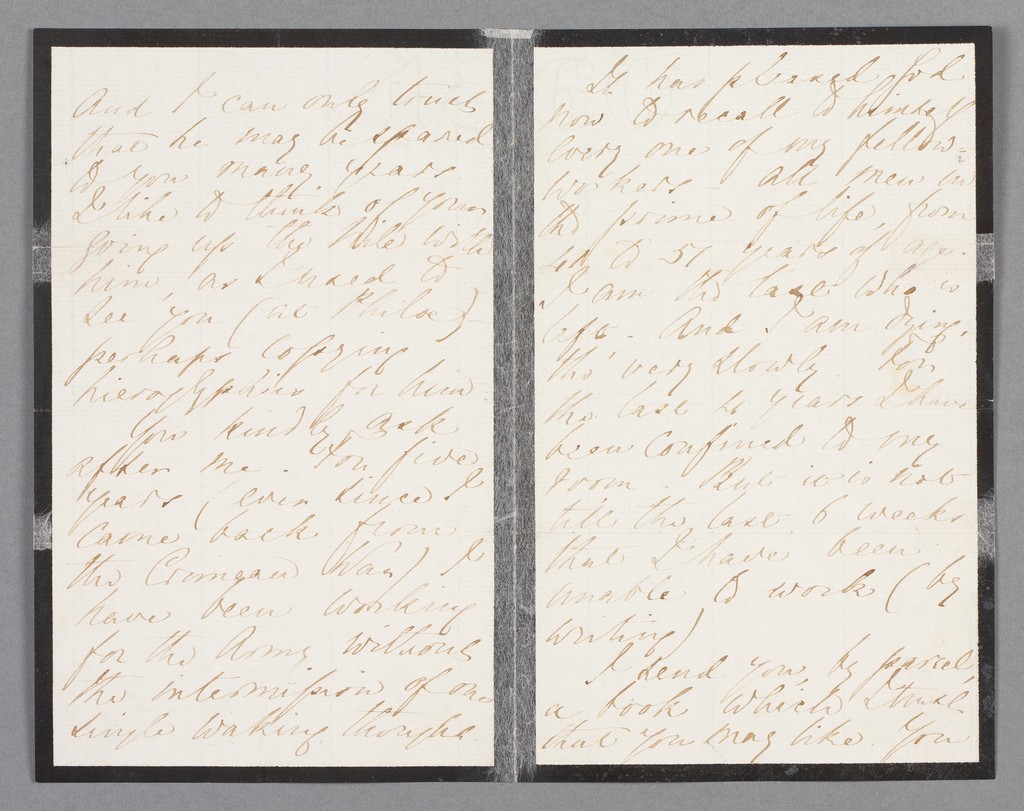 And I can only trust
that he may be spared
to you many years
I like to think of your
going up the Nile with
him, as I used to
see you (at Philoe)
perhaps copying
hieroglyphics for him.
You kindly ask
after me. For five
years (ever since I
came back from
the Crimean War) I
have been working
for the Army without
the intermission of one
single waking thought.
It has pleased God
now to recall to himself
every one of my fellow-
workers - all men in
the prime of life, from
to 51 years of age.
I am the last who is
left. And I am dying,
tho' very slowly. For
the last 4 years I have
been confined to my
room. But it is not
till the last 6 weeks
that I have been
unable to work (by
writing)
I send you, by parcel,
a book which I trust
that you may like. You